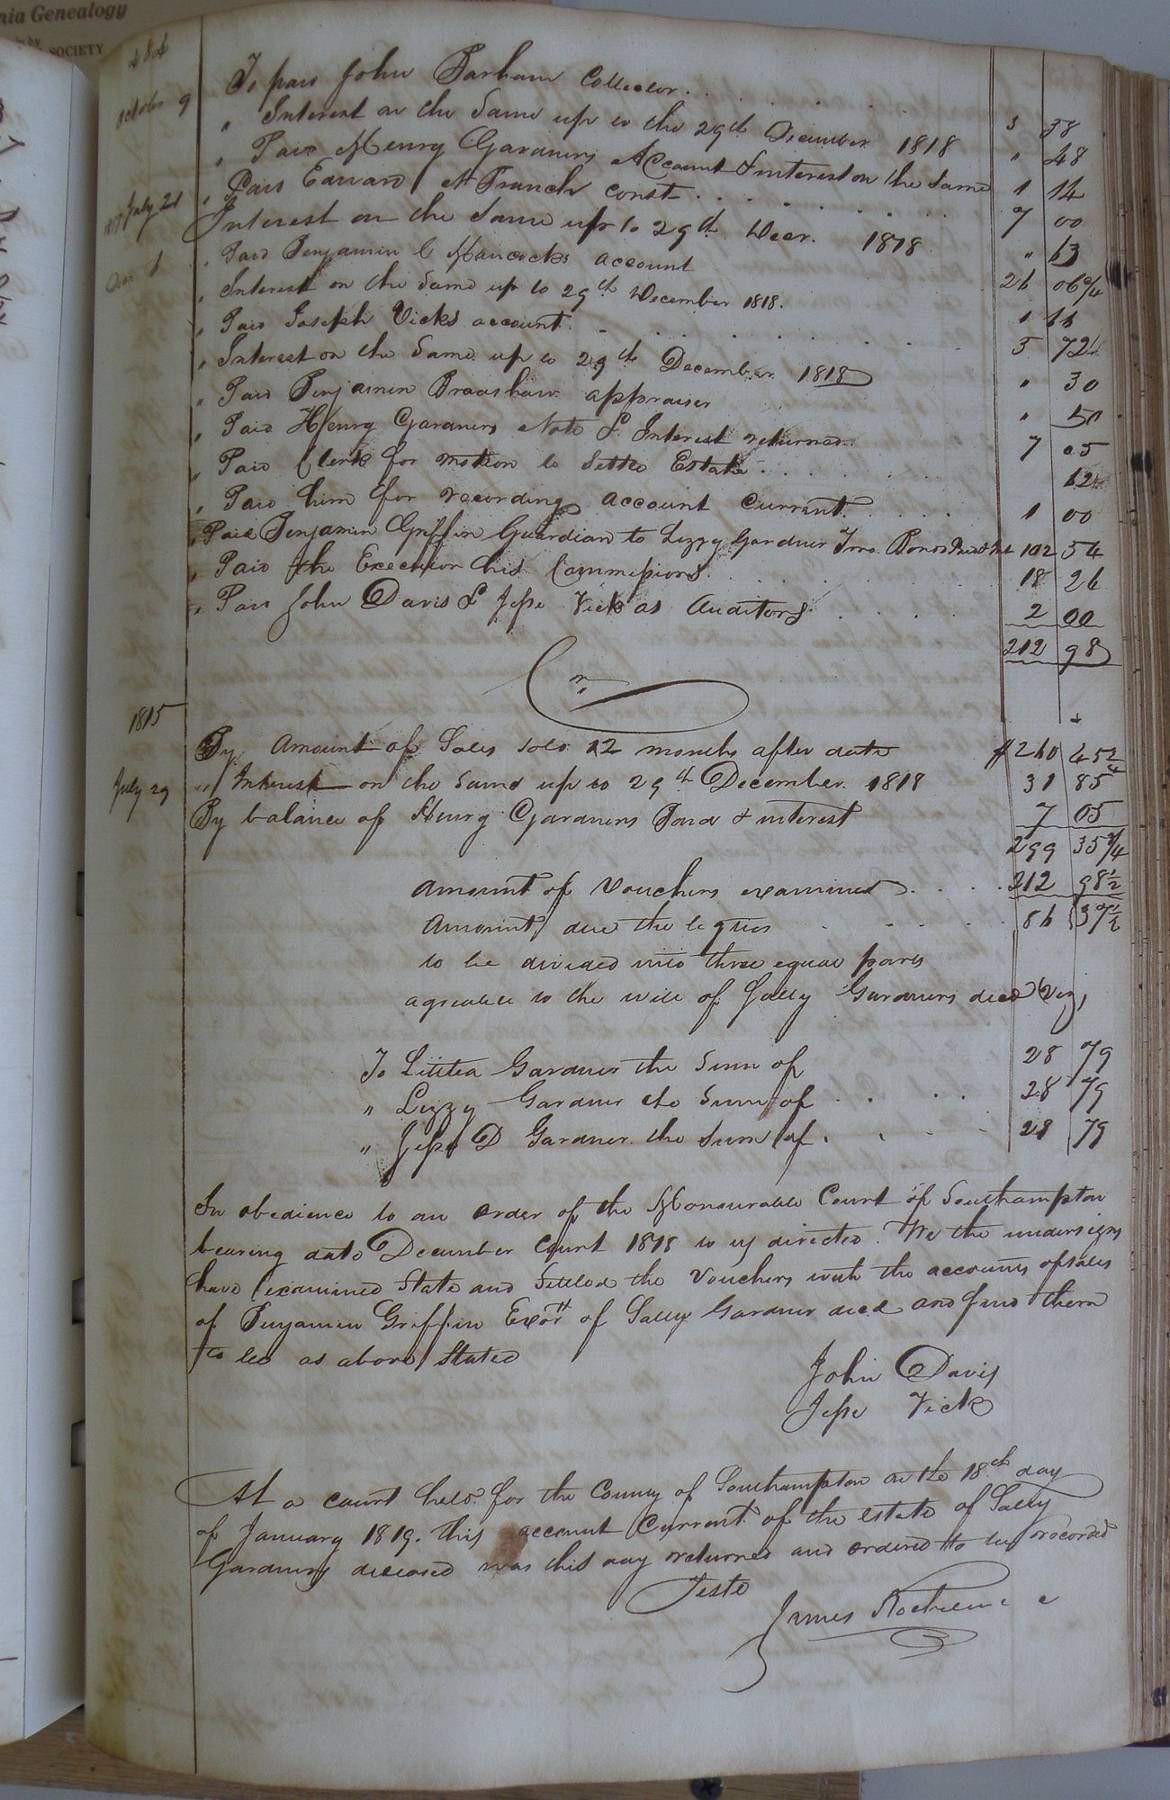 nia Genealogy
SOCIETY
October 9 To paid John Barham Collector . . . 3 38
" Interest on the Same up to the 29th December 1818 " 48
" Paid Henry Gardners Account & interest on the Same 1 14
July 21 " Paid Edward French const . . . 7 00
Interest on the Same up to 29th Decr. 1818 " 63
" Paid Benjamin C Hancocks account 26 06 3/4
" Interest on the Same up to 29th December 1818. 1 66
" Paid Joseph Vicks account . . . 5 72 1/2
" Interest on the Same up to 29th December 1818 " 30
" Paid Benjamin Bradshaw appraiser " 50
" Paid Henry Gardners Note & Interest returned 7 05
" Paid Clerk for motion to Settle Estate . . . 12 1/2
" Paid him for recording account Current . . . 1 00
" Paid Benjamin Griffin Guardian to Lizzy Gardner 102 54
" Paid the Executor his Commissions . . . 18 26
" Paid John Davis & Jesse Vick as Auditors . . . 2 00
212 98
Cr
1815
By Amount of Sales sold 12 months after date $ 260 45 2/4
July 29 " Interest on the Same up to 29th December 1818 31 85
By balance of Henry Gardners Bond & interest 7 05
299 35 3/4
Amount of Vouchers examined . . . 212 98 1/2
Amount due the legtees . . . 86 37 1/2
to be divided into three equal parts
agreeable to the will of Sally Gardners decd Viz,
To Lititia Gardner the Sum of 28 79
" Lizzy Gardner the Sum of . . . 28 79
" Jesse D Gardner the Sum of . . . 28 79
In obedience to an order of the Honourable Court of Southampton
bearing date December Court 1818 to us directed We the undersigns
have Examined State and Settled the Vouchers with the accounts of sales
of Benjamin Griffin Exor of Sally Gardner decd and find them
to be as above Stated
John Davis
Jesse Vick
At a court held for the County of Southampton on the 18th day
of January 1819. this account Current of the estate of Sally
Gardners deceased was this day returned and ordered to be recorded
Teste
James Rochelle c